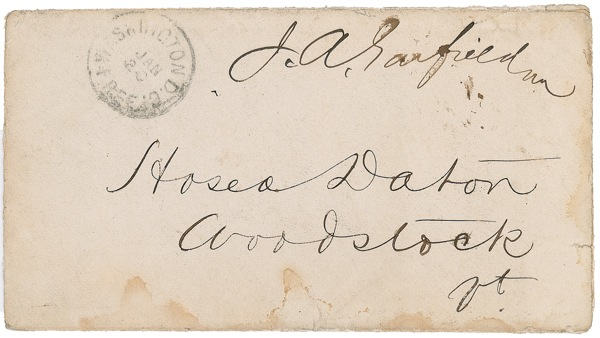 WASHINGTON D.C.
JAN
FREE
J. A. Garfield mc
Hosea Doton
Woodstock
Vt.